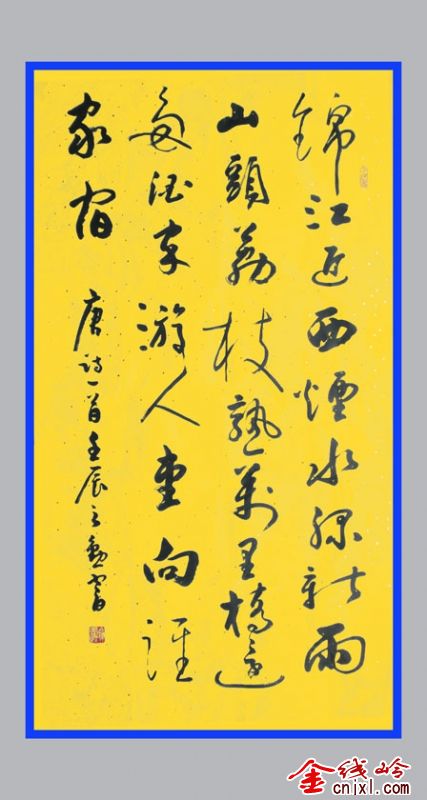 錦江近西煙水綠新雨
山頭荔枝熟萬里橋邊
多酒家游人愛向誰
家宿
唐诗一首壬辰書
金线岭
cnjxl.com